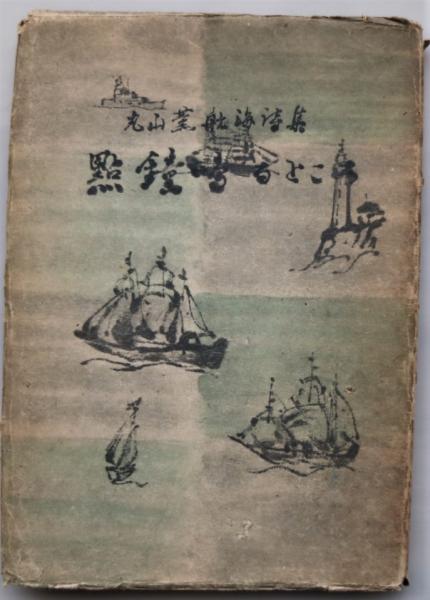 丸山薫航海詩集
點鐘鳴るところ